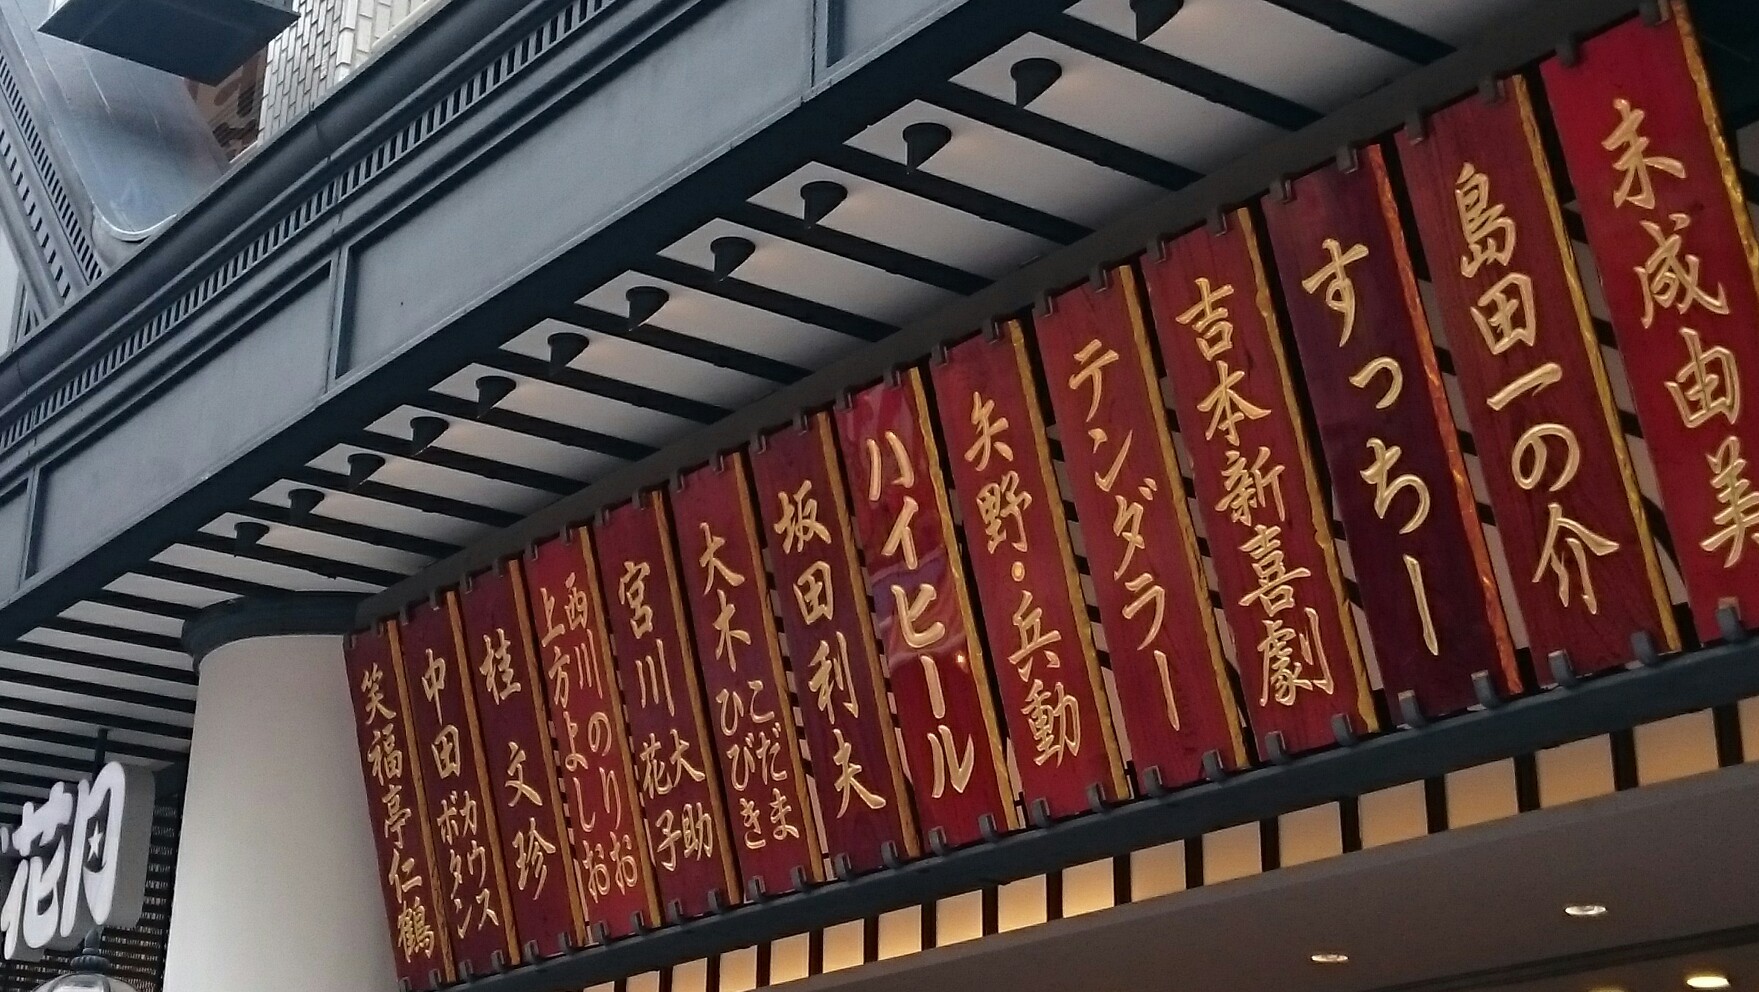 末成由美
島田一の介
すっちー
吉本新喜劇
テンダラー
矢野・兵動
ハイヒール
坂田利夫
大木こだま
ひびき
宮川大助
花子
西川のりお
上方よしお
桂文珍
中田カウス
ボタン
笑福亭仁鶴
花月